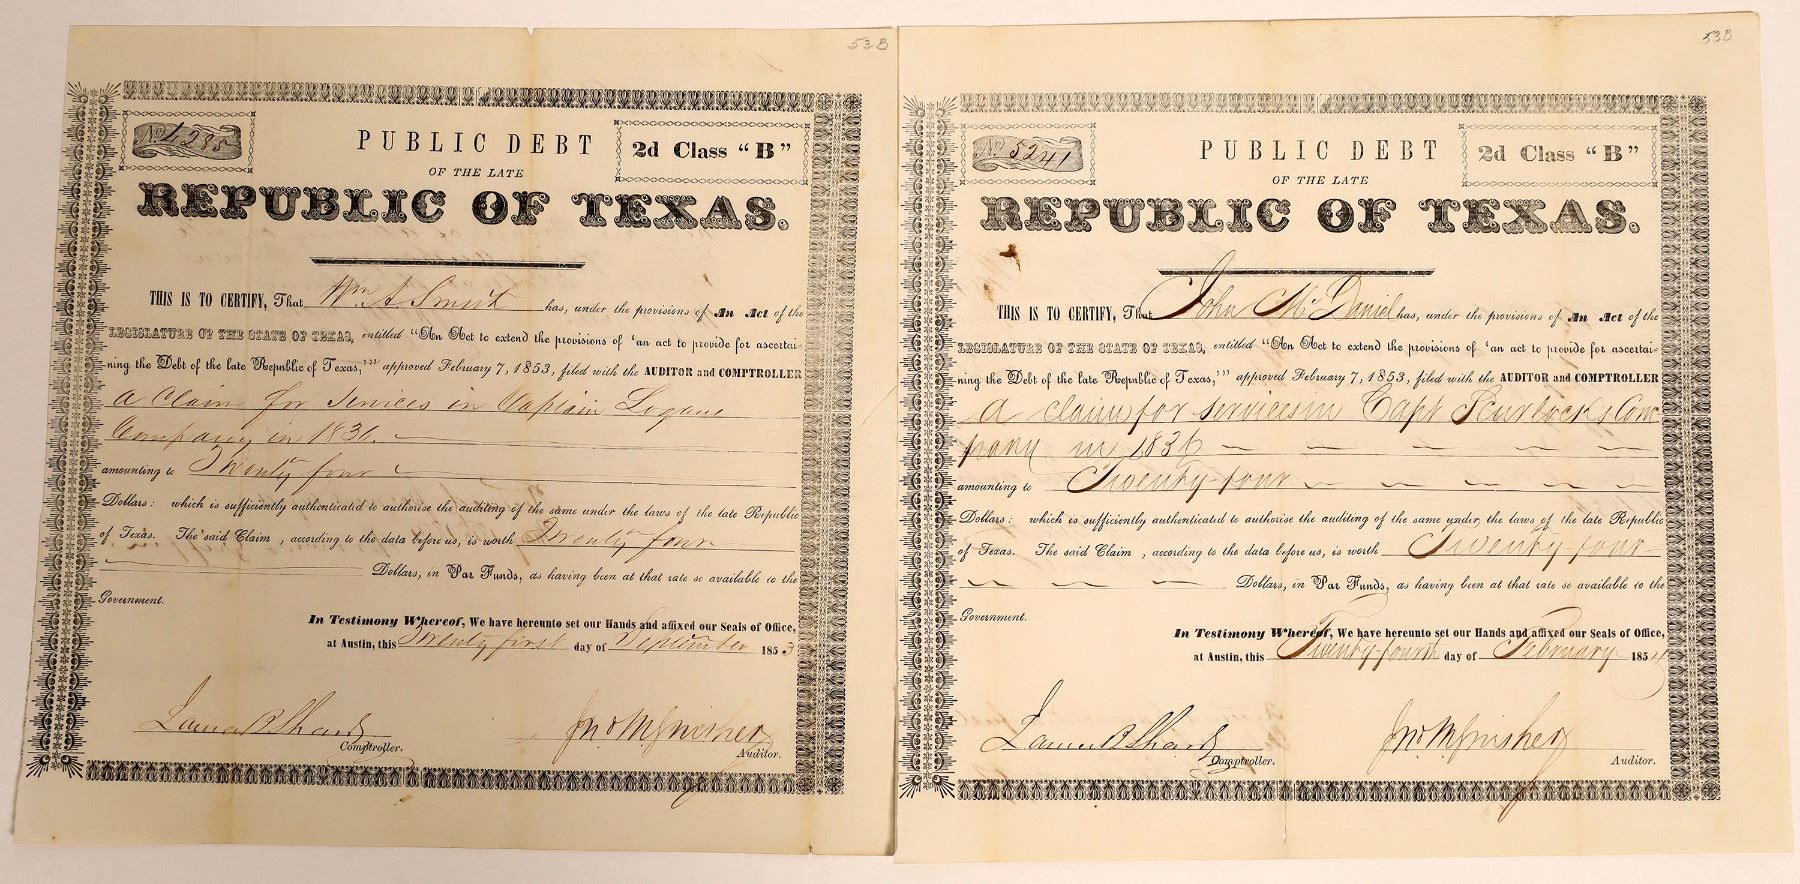 53B
No 1285
PUBLIC DEBT
2d Class "B"
OF THE LATE
REPUBLIC OF TEXAS.
THIS IS TO CERTIFY, That Wm A Smith has, under the provisions of An Act of the
LEGISLATURE OF THE STATE OF TEXAS, entitled "An Act to extend the provisions of 'an act to provide for ascertai-
ning the Debt of the late Republic of Texas,'" approved February 7, 1853, filed with the AUDITOR and COMPTROLLER
a claim for services in Captain Logans
Company in 1836.
amounting to Twenty four
Dollars: which is sufficiently authenticated to authorise the auditing of the same under the laws of the late Republic
of Texas. The said Claim, according to the data before us, is worth Twenty four
Dollars, in Par Funds, as having been at that rate so available to the
Government.
In Testimony Whereof, We have hereunto set our Hands and affixed our Seals of Office,
at Austin, this Twenty first day of September 1853
James B Shaw
Jno M Swisher
Comptroller.
Auditor.
53B
No 5241
PUBLIC DEBT
2d Class "B"
OF THE LATE
REPUBLIC OF TEXAS.
THIS IS TO CERTIFY, That John McDaniel has, under the provisions of An Act of the
LEGISLATURE OF THE STATE OF TEXAS, entitled "An Act to extend the provisions of 'an act to provide for ascertai-
ning the Debt of the late Republic of Texas,'" approved February 7, 1853, filed with the AUDITOR and COMPTROLLER
a claim for services in Capt Scurlocks Com
pany in 1836
amounting to Twenty-four
Dollars: which is sufficiently authenticated to authorise the auditing of the same under the laws of the late Republic
of Texas. The said Claim, according to the data before us, is worth Twenty four
Dollars, in Par Funds, as having been at that rate so available to the
Government.
In Testimony Whereof, We have hereunto set our Hands and affixed our Seals of Office,
at Austin, this Twenty-fourth day of February 1854
James B Shaw
Jno M Swisher
Comptroller.
Auditor.